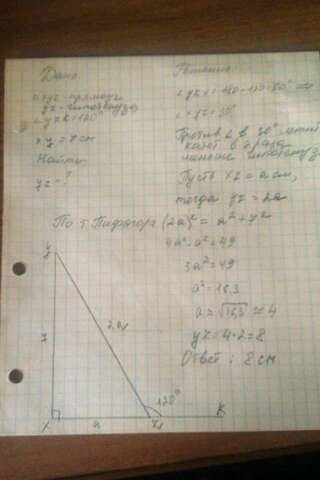 Дано:
xyz - прямоуг.
yz - гипотенуза
∠yzk = 120°
xy = 7 см
Найти:
yz - ?
Решение:
∠yzx = 180 - 120 = 60° =>
∠xyz = 30°
Против ∠ в 30° лежит
катет в 2 раза
меньше гипотенузы
Пусть xz = a см,
тогда yz = 2a
По т. Пифагора (2a)² = a² + 7²
4a² - a² = 49
3a² = 49
a² = 16,3
a = √16,3 ≈ 4
yz = 4 · 2 = 8
Ответ: 8 см
y
7
2a
120°
x
a
z
K